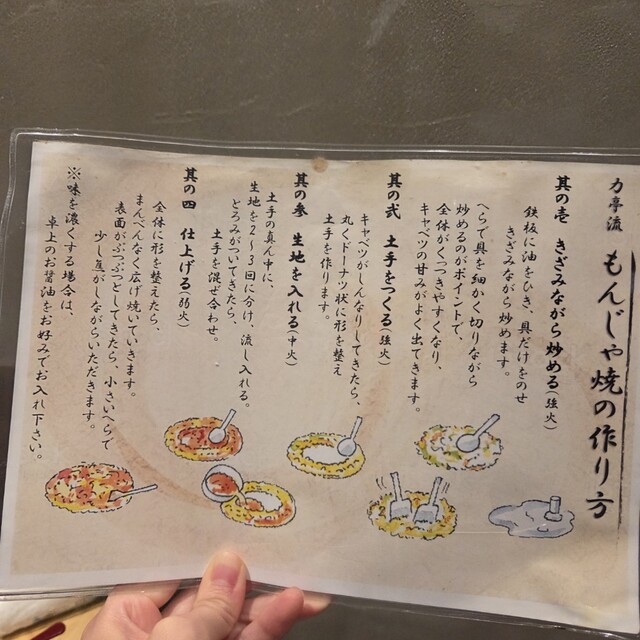 力亭流 もんじゃ焼の作り方
其の壱 きざみながら炒める(強火)
鉄板に油をひき、具だけをのせ
きざみながら炒めます。
へらで具を細かく切りながら
炒めるのがポイントで、
全体がくつきやすくなり、
キャベツの甘みがよく出てきます。
其の弐 土手をつくる(強火)
キャベツがしんなりしてきたら、
丸くドーナツ状に形を整え
土手を作ります。
其の参 生地を入れる(中火)
土手の真ん中に、
生地を2〜3回に分け、流し入れる。
とろみがついてきたら、
土手を混ぜ合わせ。
其の四 仕上げる(弱火)
全体に形を整えたら、
まんべんなく広げ焼いていきます。
表面がぶつぶつとしてきたら、小さいへらで
少し焦がしながらいただきます。
※味を濃くする場合は、
卓上のお醤油をお好みでお入れ下さい。